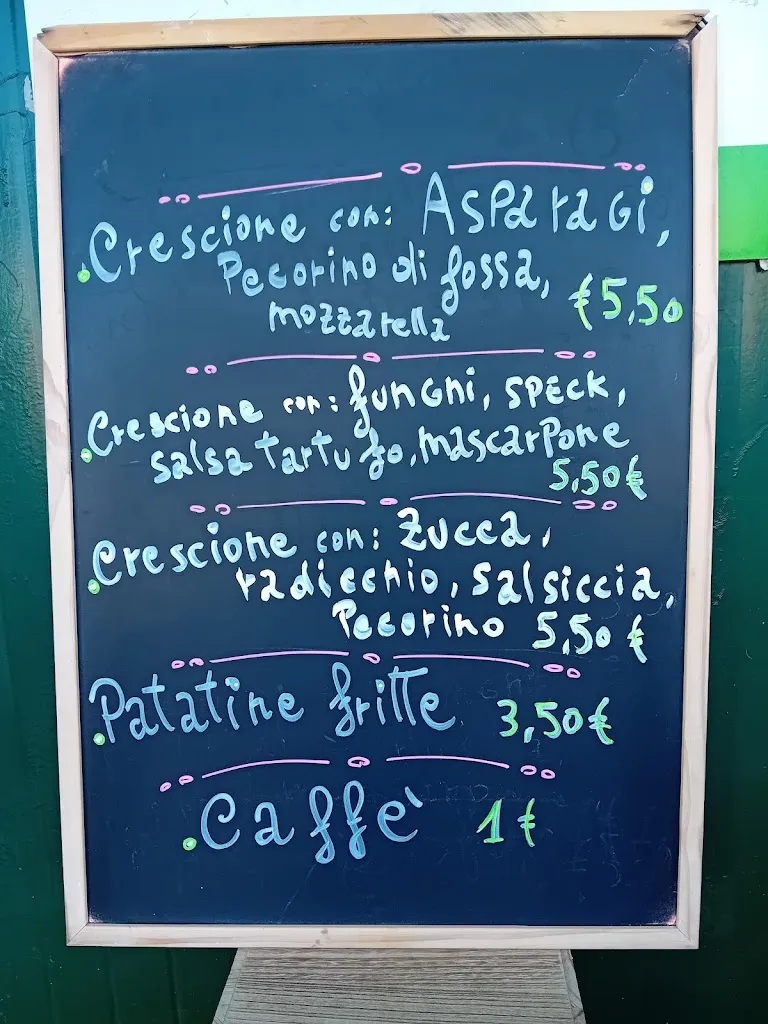 Crescione con: Asparagi,
Pecorino di fossa,
mozzarella €5,50
Crescione con: funghi, speck,
salsa tartufo, mascarpone
5,50€
Crescione con: Zucca,
radicchio, salsiccia,
Pecorino 5,50€
Patatine fritte 3,50€
Caffè 1€